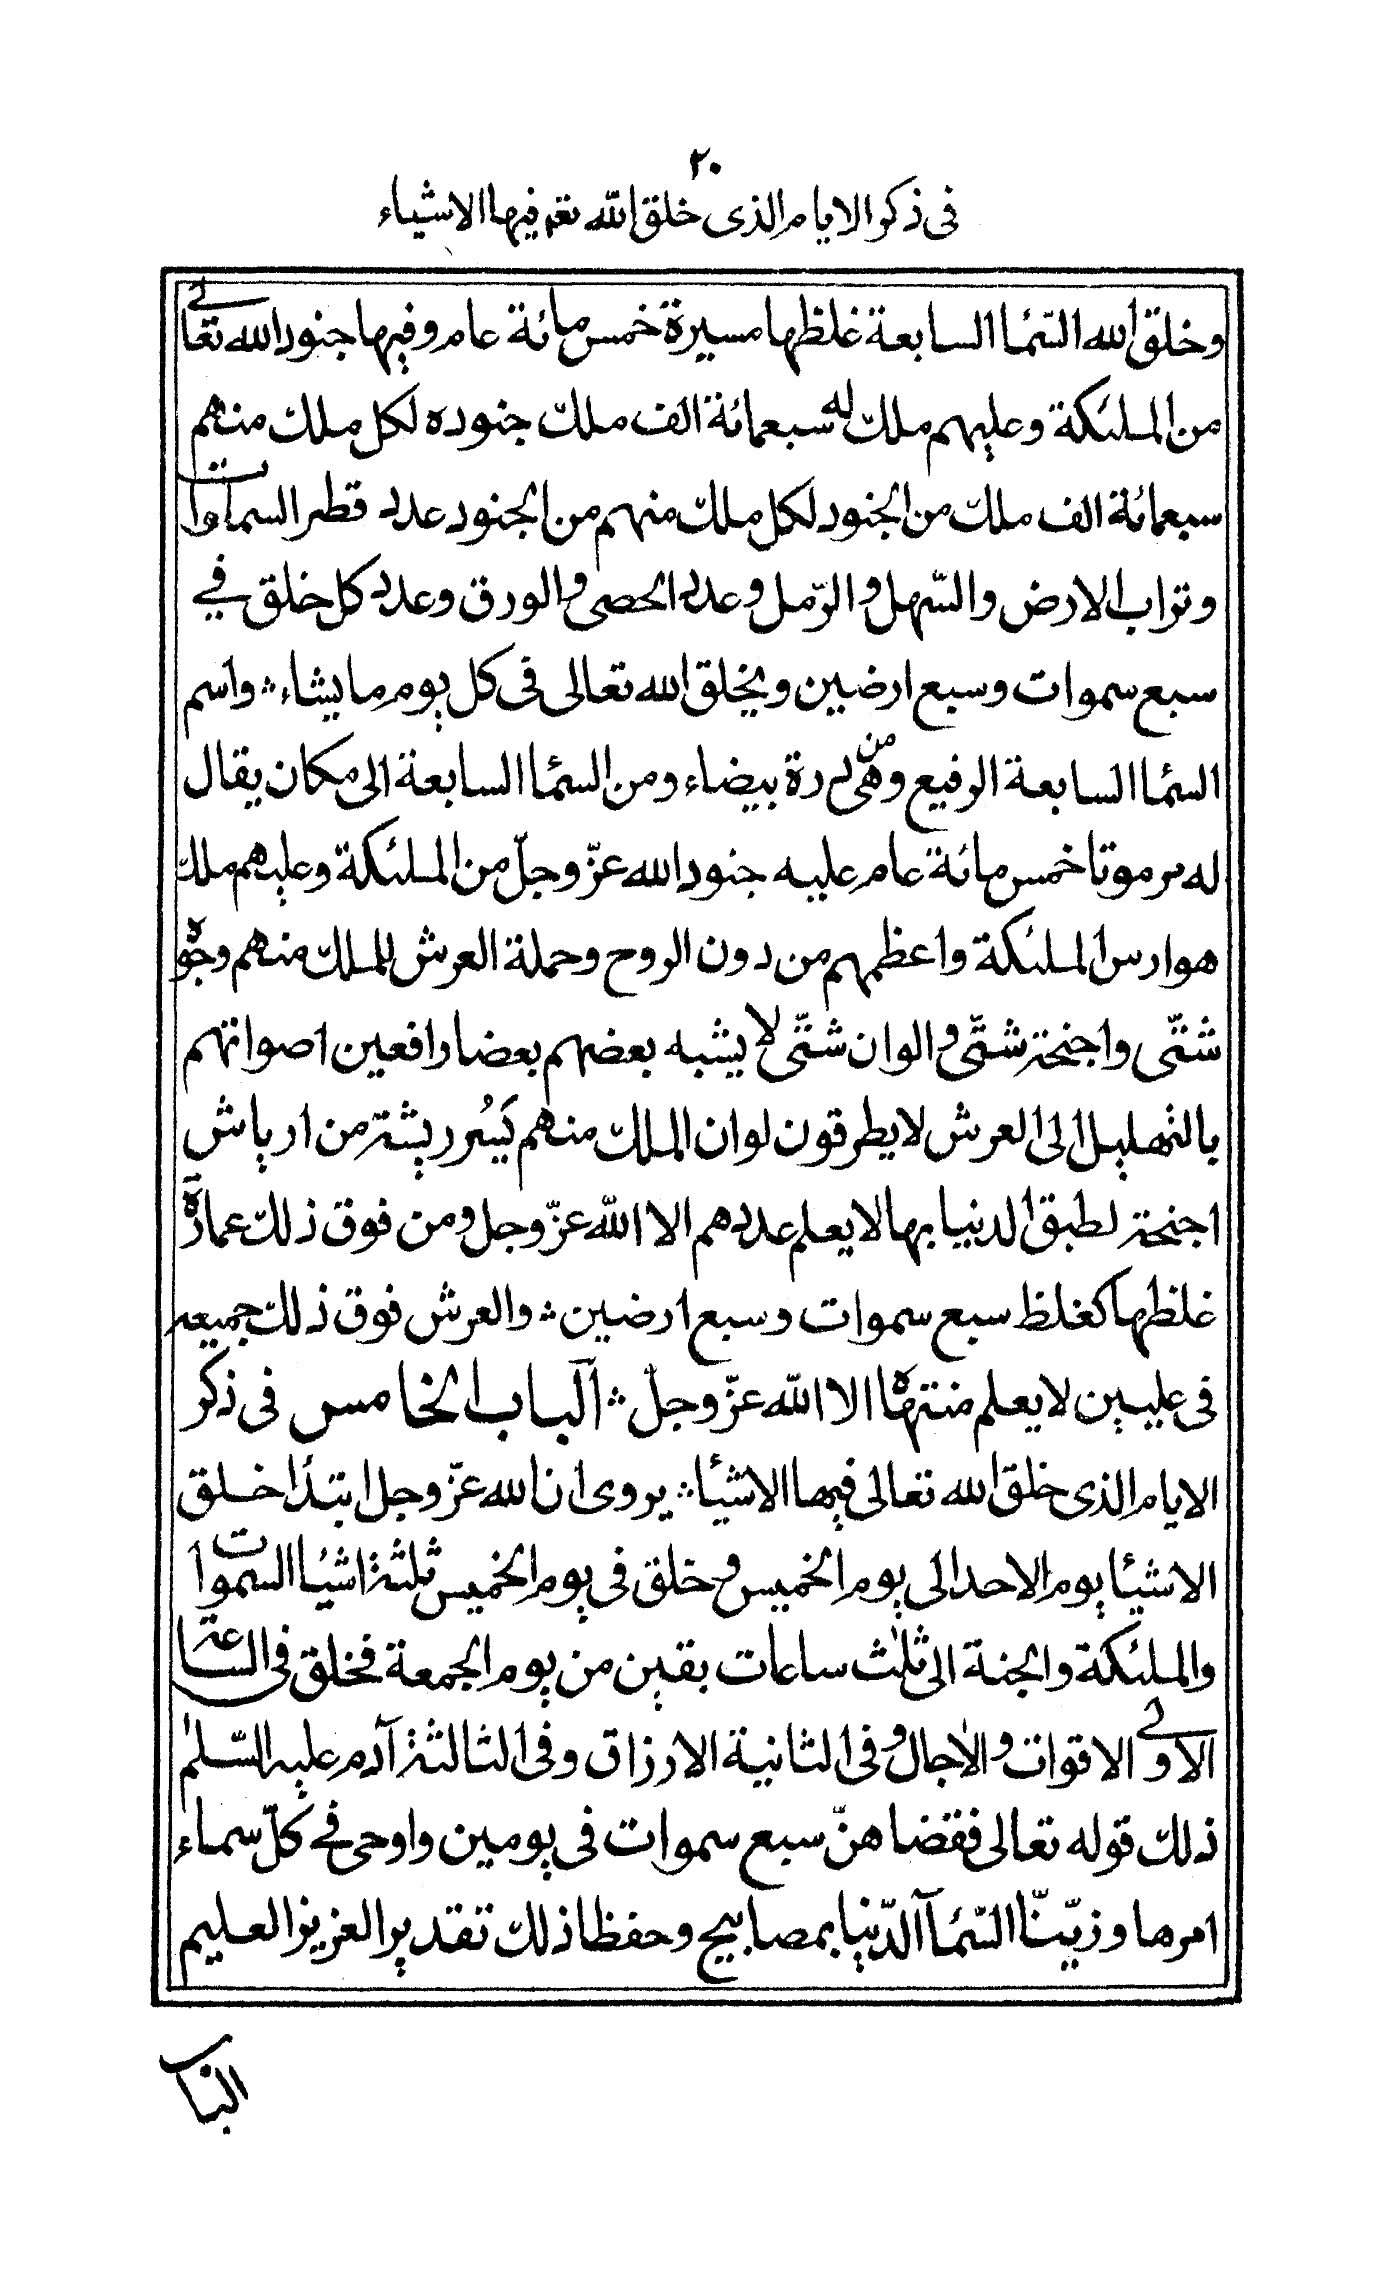 ٢٠
فى ذكر الايام الذى خلق الله تعه فيها الاشياء
وخلق الله السّمٰا السابعة غلظها مسيرة خمس مائة عام وفيها جنود الله تعالى
من الملئكة وعليهم ملك له سبعمائة الف ملك جنوده لكل ملك منهم
سبعمائة الف ملك من الجنود لكل ملك منهم من الجنود عدد قطر السماوات
وتراب الارض والسّهل والرّمل وعدد الحصى والورق وعدد كل خلق في
سبع سموات وسبع ارضين ويخلق الله تعالى فى كل يوم ما يشاء ؞ واسم
السمٰا السابعة الرفيع وهى من درة بيضاء ومن السمٰا السابعة الى مكان يقال
له مرموتا خمس مائة عام عليه جنود الله عزّ وجلّ من الملئكة وعليهم ملك
هو ارس الملئكة واعظمهم من دون الروح وحملة العرش للملك منهم وجوه
شتّى واجنحة شتّى والوان شتّى لا يشبه بعضهم بعضا رافعين اصواتهم
بالتهليل الى العرش لا يطرقون لو ان الملك منهم يَسُر ريشة من ارياش
اجنحة لطبق الدنيا بها لا يعلم عددهم الا الله عزّ وجل ومن فوق ذلك عمارة
غلظها كغلظ سبع سموات وسبع ارضين ؞ والعرش فوق ذلك جميعه
فى عليين لا يعلم منتهاه الا الله عزّ وجلّ ؞ الباب الخامس فى ذكر
الايام الذى خلق الله تعالى فيها الاشيٰا ؞ يروى ان الله عزّ وجل ابتدأ خلق
الاشيٰا يوم الاحد الى يوم الخميس وخلق فى يوم الخميس ثلثة اشيٰا السموات
والملئكة والجنة الى ثلٰث ساعات بقين من يوم الجمعة فخلق فى الساعة
الاولى الاقوات والاٰجال وفى الثانية الارزاق وفى الثالثة آدم عليه السّلٰم
ذلك قوله تعالى فقضا هنّ سبع سموات فى يومين واوحى في كلّ سماء
امرها وزيّنّا السّمآ الدّنيا بمصابيح وحفظا ذلك تقدير العزيز العليم
الباب